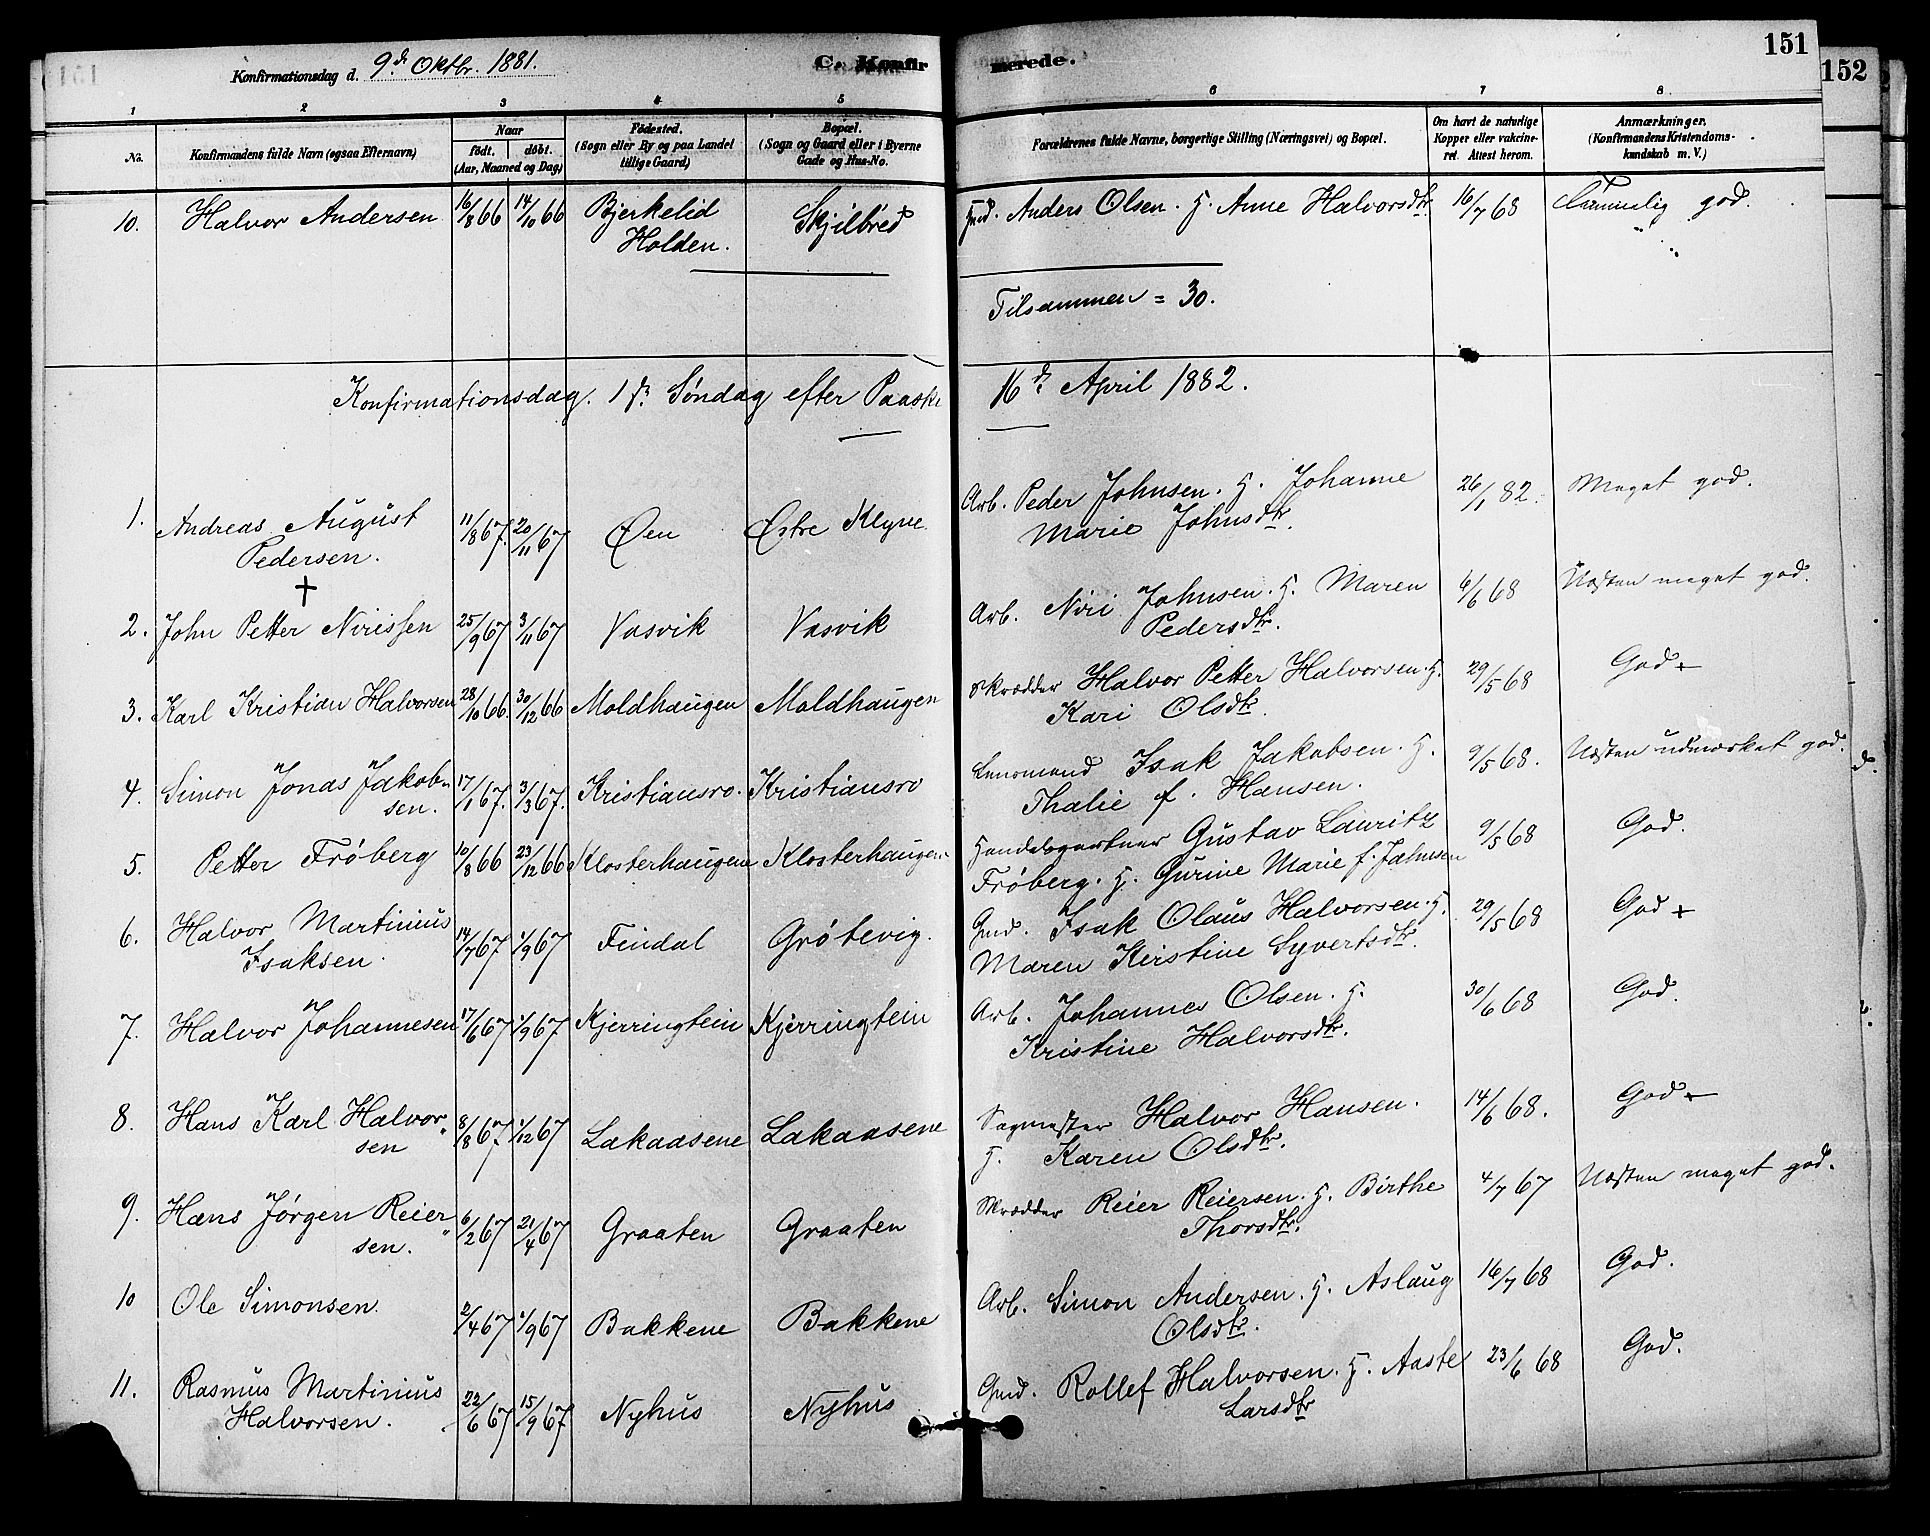 151
152
Konfirmationsdag d. 9de Oktbr. 1881.
C. Konfirmerede.
1 2 3 4 5 6 7 8
No.
Konfirmandens fulde Navn (ogsaa Efternavn)
Naar
födt. döbt.
(Aar, Maaned og Dag)
Födested.
(Sogn eller By og paa Landet
tillige Gaard)
Bopæl.
(Sogn og Gaard eller i Byerne
Gade og Hus-No.
Forældrenes fulde Navne, borgerlige Stilling (Næringsvei) og Bopæl.
Om havt de naturlige
Kopper eller vakcine-
ret. Attest herom.
Anmærkninger.
(Konfirmandens Kristendoms-
kundskab m. V.)
10. Halvor Andersen 16/8 66 14/10 66 Bjerkelid Skjilbred Gmd. Anders Olsen. H. Anne Halvorsdtr 16/7 68 Temmelig god.
Holden.
Tilsammen = 30.
Konfirmationsdag. 1ste Søndag efter Paaske 16de April 1882.
1. Andreas August 11/8 67. 20/11 67 Øen Østre Klyve Arb. Peder Johnsen. H. Johanne 26/1 82. Meget god.
Pedersen. Marie Johnsdtr.
+
2. John Petter Nirissen 25/9 67 3/11 67 Vasvik Vasvik Arb. Niri Johnsen. H. Maren 6/6 68 Næsten meget god.
Pedersdtr.
3. Karl Kristian Halvorsen 28/10 66. 30/12 66 Moldhaugen Moldhaugen Skrædder Halvor Petter Halvorsen. H. 29/5 68 God +
Kari Olsdtr.
4. Simon Jonas Jakob- 17/1 67. 3/3 67. Kristiansro. Kristiansro Lensmand Isak Jakobsen. H. 9/5 68. Næsten udmærket god.
sen. Thalie f. Hansen.
5. Petter Frøberg 10/8 66 23/12 66 Klosterhaugene Klosterhaugen Handelsgartner Gustav Lauritz 9/5 68 God.
Frøberg. H. Gurine Marie f. Jahnsen
6. Halvor Martinius 14/7 67 1/9 67 Findal Grøtevig. Gmd. Isak Olaus Halvorsen. H. 29/5 68 God +
Isaksen. Maren Kirstine Syvertsdtr.
7. Halvor Johannesen 17/6 67 1/9 67. Kjerringtein Kjerringtein Arb. Johannes Olsen. H. 30/6 68 God.
Kristine Halvorsdtr.
8. Hans Karl Halvor- 8/8 67 1/12 67 Lakaasene Lakaasene Sagmester Halvor Hansen. 14/6 68. God +
sen H. Karen Olsdtr.
9. Hans Jørgen Reier- 6/2 67 21/4 67 Graaten Graaten Skrædder Reier Reiersen. H. Birthe 4/7 67 Næsten meget god.
sen. Thorsdtr.
10 Ole Simonsen. 2/4 67 1/9 67 Bakkene Bakkene Arb. Simon Andersen. H. Aslaug 16/7 68 God.
Olsdtr.
11. Rasmus Martinius 22/6 67 15/9 67. Nyhus Nyhus Gmd. Rollef Halvorsen. H. Aaste 23/6 68 God.
Halvorsen. Larsdtr